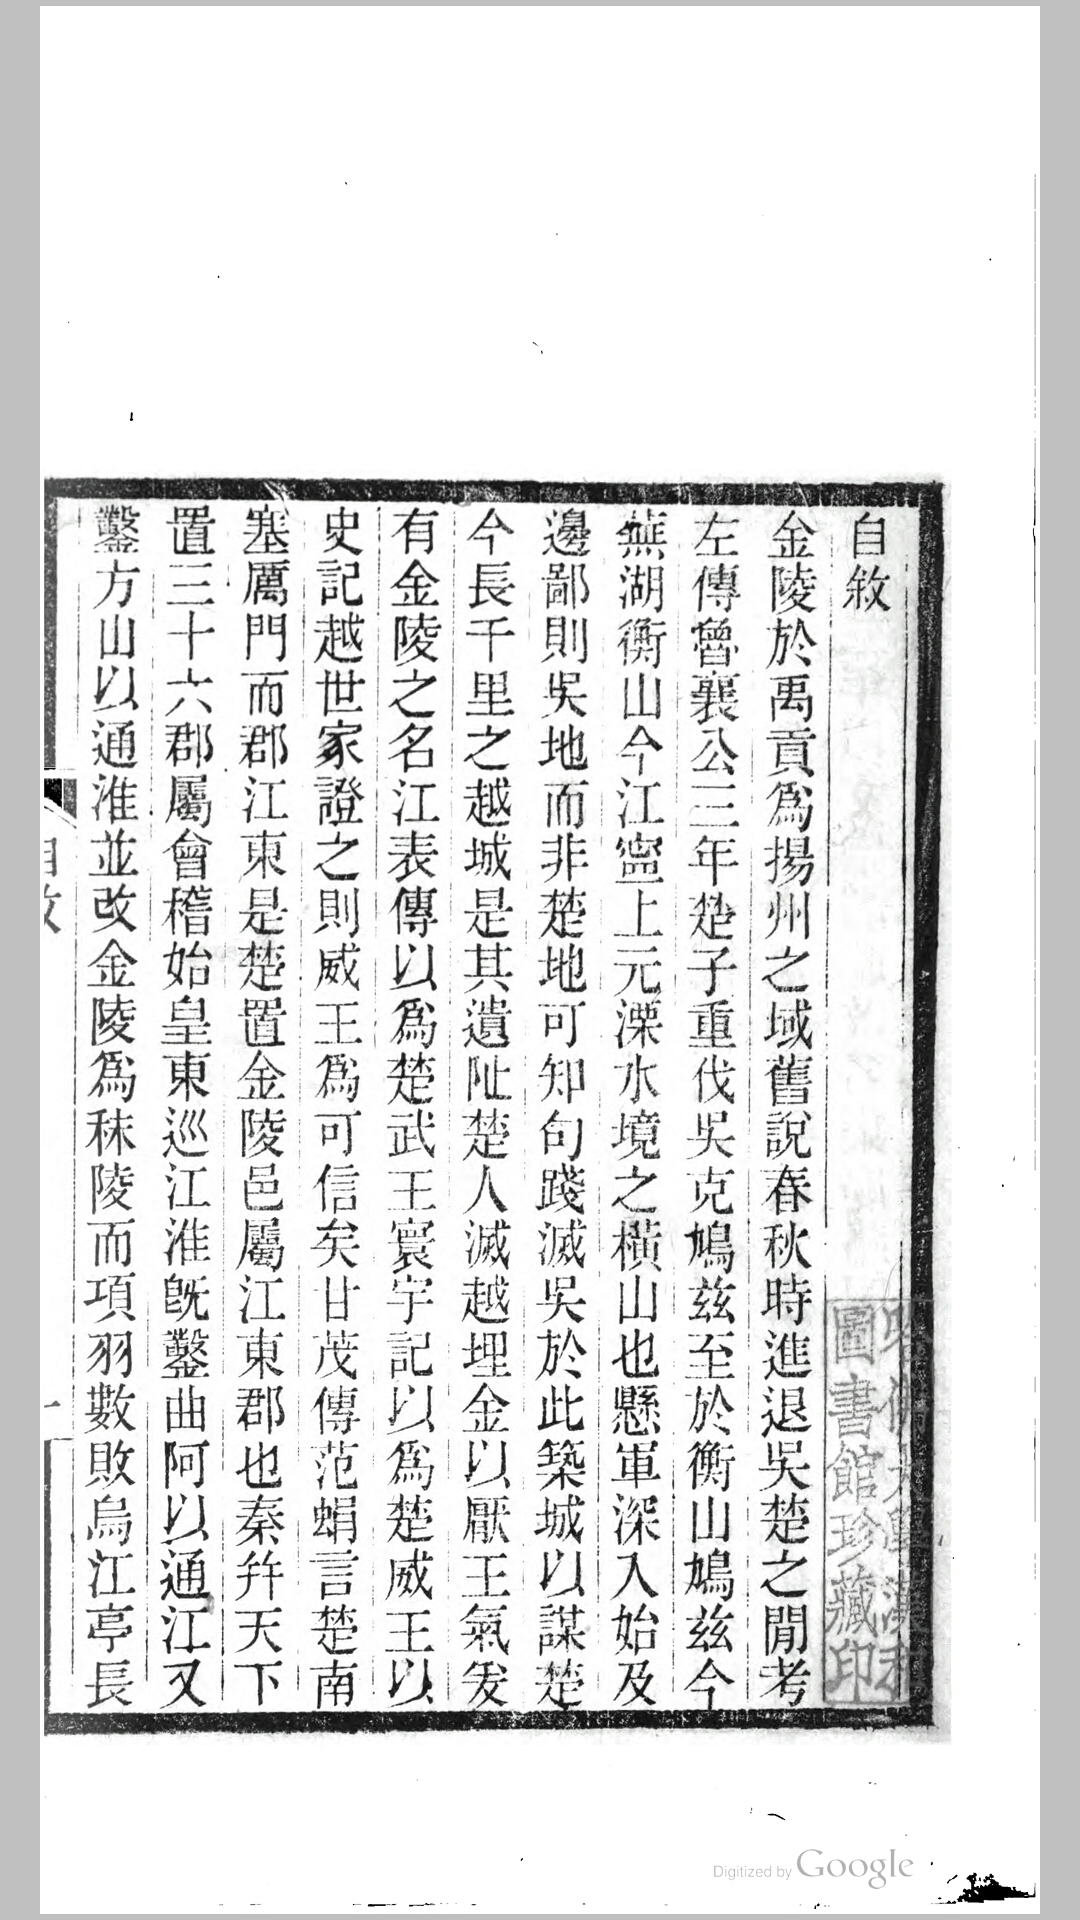 自敘
金陵於禹貢爲揚州之域舊說春秋時進退吳楚之閒考
左傳魯襄公三年楚子重伐吳克鳩茲至於衡山鳩茲今
蕪湖衡山今江寧上元溧水境之橫山也懸軍深入始及
邊鄙則吳地而非楚地可知句踐滅吳於此築城以謀楚
今長千里之越城是其遺阯楚人滅越埋金以厭王氣爰
有金陵之名江表傳以爲楚武王寰宇記以爲楚威王以
史記越世家證之則威王爲可信矣甘茂傳范蜎言楚南
塞厲門而郡江東是楚置金陵邑屬江東郡也秦幷天下
置三十六郡屬會稽始皇東巡江淮旣鑿曲阿以通江又
鑿方山以通淮並改金陵爲秣陵而項羽數敗烏江亭長
自敘
一
圖書館珍藏印
Digitized by Google